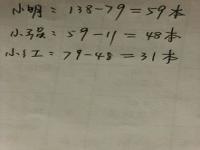 小明：138-79=59本
小强：59-11=48本
小红=79-48=31本